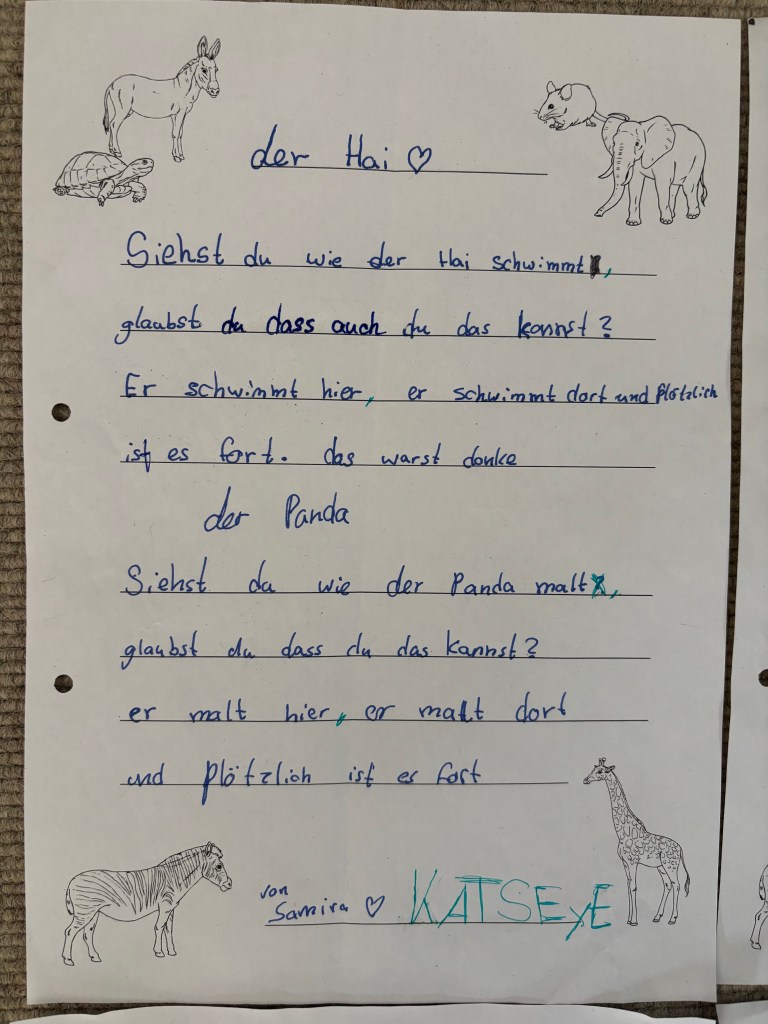 der Hai ♡
Siehst du wie der Hai schwimmt,
glaubst du dass auch du das kannst?
Er schwimmt hier, er schwimmt dort und plötzlich
ist es fort. das warst danke
der Panda
Siehst du wie der Panda malt,
glaubst du dass du das kannst?
er malt hier, er malt dort
und plötzlich ist er fort
von
Samira ♡ KATSEyE